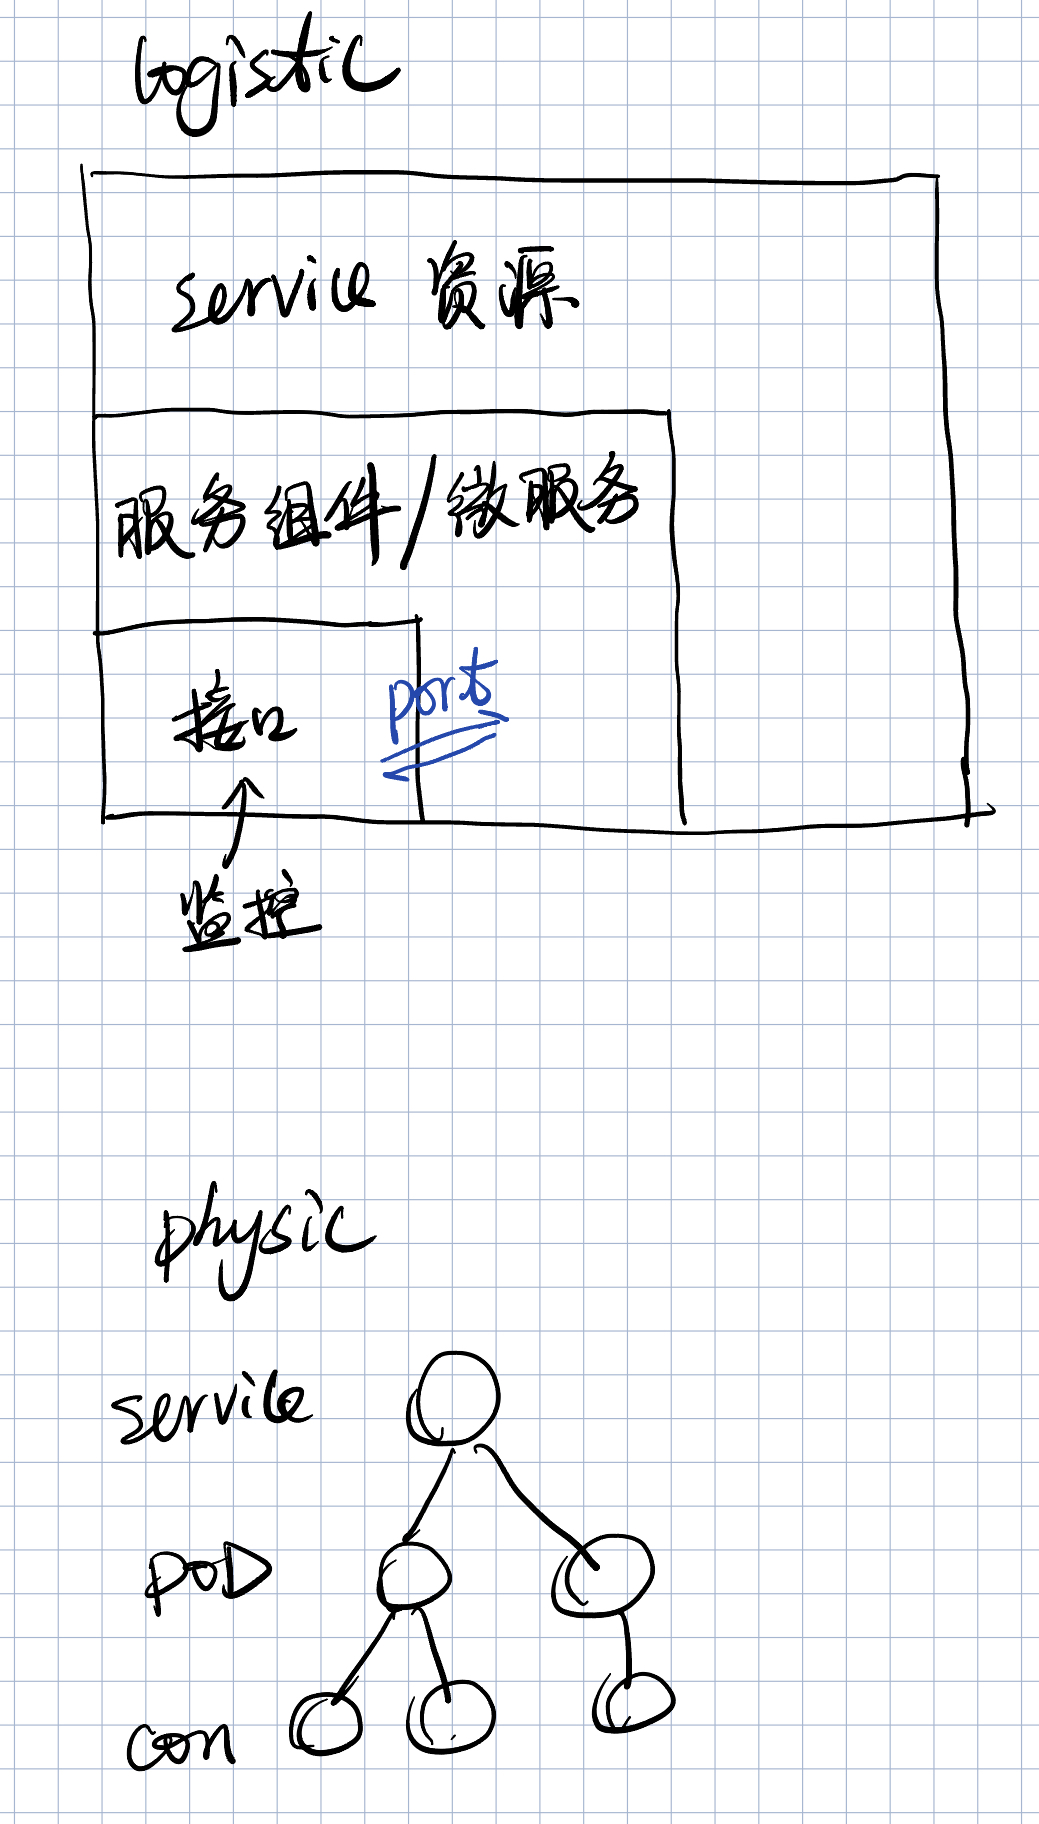 logistic
service 资源
服务组件/微服务
接口
port
监控
physic
service
POD
con